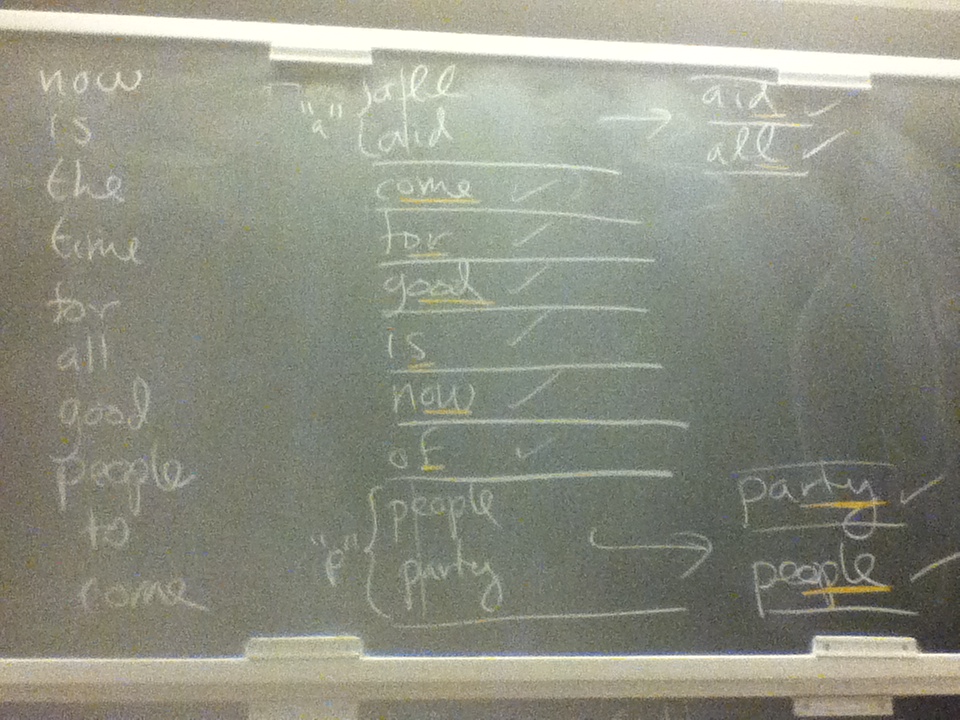 now
is
the
time
for
all
good
people
to
come
"a"
all
aid
come
for
good
is
now
of
"p"
people
party
aid
all
party
people